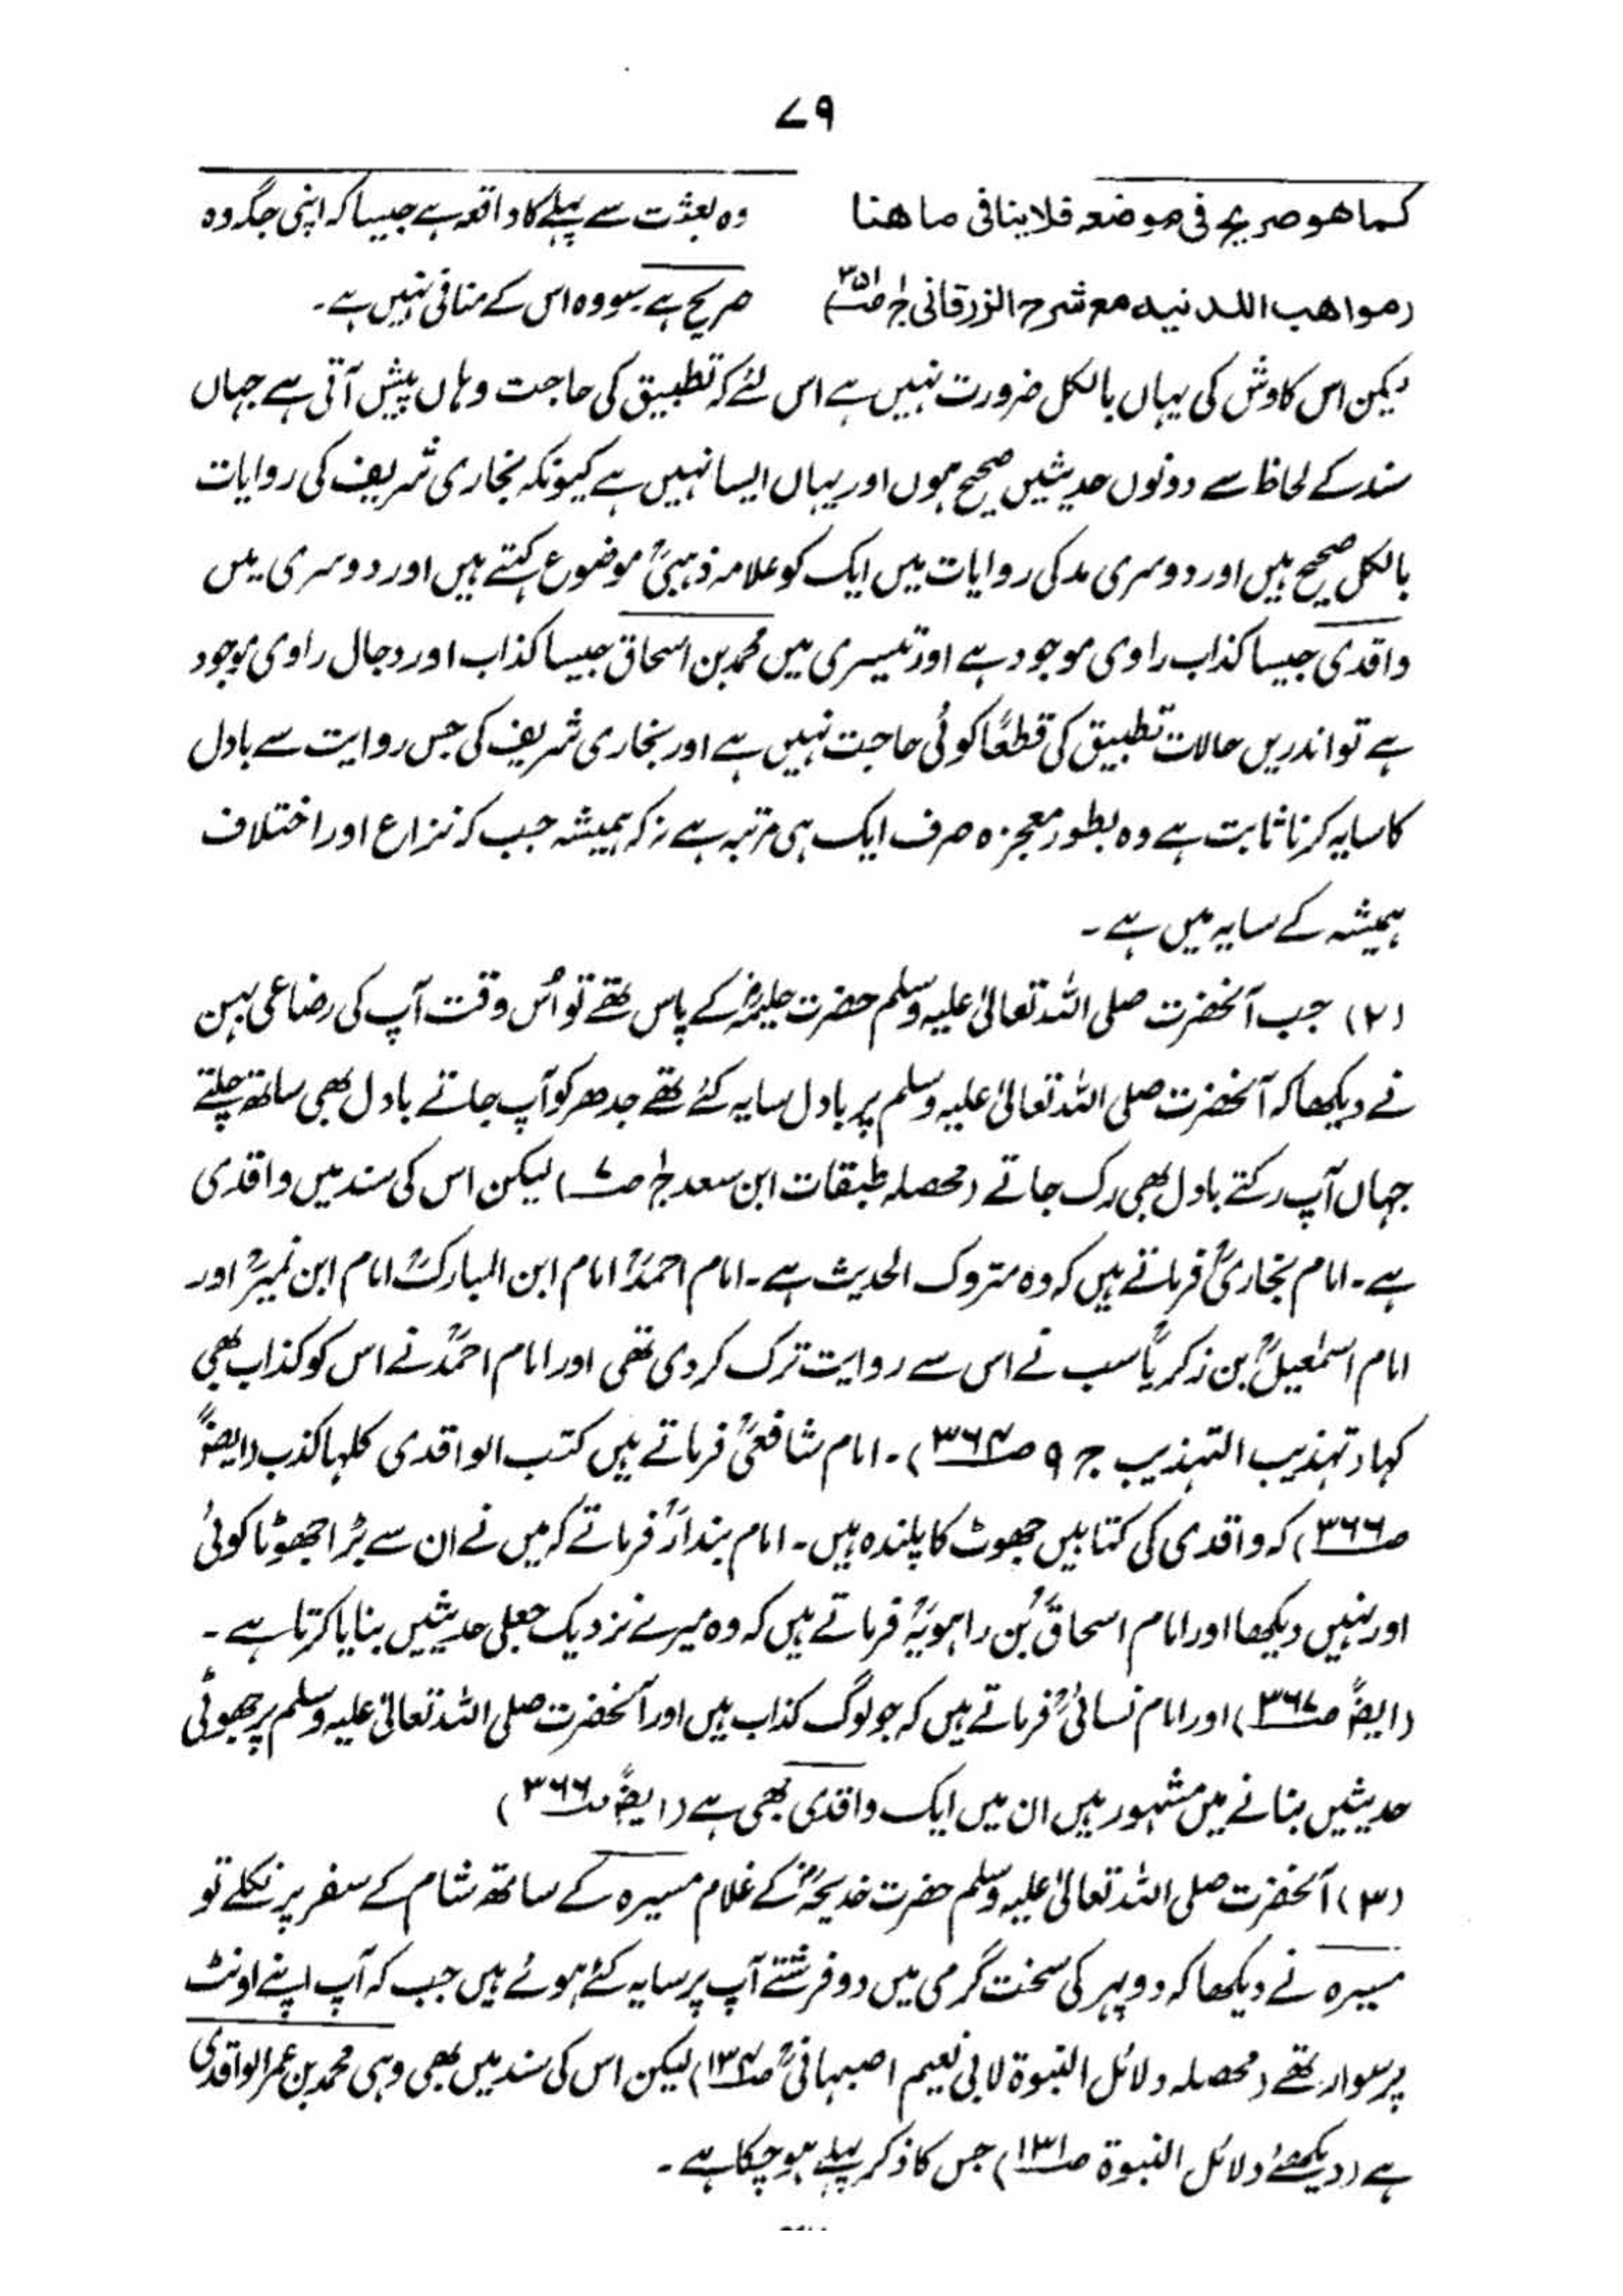 ۷۹
کما هو صریح فی موضعه فلا ینافی ما هنا
(مواهب اللدنیه مع شرح الزرقانی ج۱ ص۳۵۱)
وہ بعثت سے پہلے کا واقعہ ہے جیسا کہ اپنی جگہ وہ
صریح ہے سو وہ اس کے منافی نہیں ہے۔
لیکن اس کاوش کی یہاں بالکل ضرورت نہیں ہے اس لئے کہ تطبیق کی حاجت وہاں پیش آتی ہے جہاں
سند کے لحاظ سے دونوں حدیثیں صحیح ہوں اور یہاں ایسا نہیں ہے کیونکہ بخاری شریف کی روایات
بالکل صحیح ہیں اور دوسری مد کی روایات میں ایک کو علامہ ذہبیؒ موضوع کہتے ہیں اور دوسری میں
واقدی جیسا کذاب راوی موجود ہے اور تیسری میں محمد بن اسحاق جیسا کذاب اور دجال راوی موجود
ہے تو اندریں حالات تطبیق کی قطعًا کوئی حاجت نہیں ہے اور بخاری شریف کی جس روایت سے بادل
کا سایہ کرنا ثابت ہے وہ بطور معجزہ صرف ایک ہی مرتبہ ہے نہ کہ ہمیشہ جب کہ نزاع اور اختلاف
ہمیشہ کے سایہ میں ہے۔
(۲) جب آنحضرت صلی اللہ تعالیٰ علیہ وسلم حضرت حلیمہؓ کے پاس تھے تو اُس وقت آپ کی رضاعی بہن
نے دیکھا کہ آنحضرت صلی اللہ تعالیٰ علیہ وسلم پر بادل سایہ کئے تھے جدھر کو آپ جاتے بادل بھی ساتھ چلتے
جہاں آپ رکتے بادل بھی رک جاتے (محصلہ طبقات ابن سعد ج۱ ص۷) لیکن اس کی سند میں واقدی
ہے۔ امام بخاریؒ فرماتے ہیں کہ وہ متروک الحدیث ہے۔ امام احمدؒ امام ابن المبارکؒ امام ابن نمیرؒ اور
امام اسمٰعیلؒ بن زکریاؒ سب نے اس سے روایت ترک کر دی تھی اور امام احمدؒ نے اس کو کذاب بھی
کہا (تہذیب التہذیب ج ۹ ص۳۶۴)۔ امام شافعیؒ فرماتے ہیں کتب الواقدی کلہا کذب (ایضًا
ص۳۶۶) کہ واقدی کی کتابیں جھوٹ کا پلندہ ہیں۔ امام بندارؒ فرماتے کہ میں نے ان سے بڑا جھوٹا کوئی
اور نہیں دیکھا اور امام اسحاقؒ بن راہویہؒ فرماتے ہیں کہ وہ میرے نزدیک جعلی حدیثیں بنایا کرتا ہے۔
(ایضًا ص۳۶۷) اور امام نسائیؒ فرماتے ہیں کہ جو لوگ کذاب ہیں اور آنحضرت صلی اللہ تعالیٰ علیہ وسلم پر جھوٹی
حدیثیں بنانے میں مشہور ہیں ان میں ایک واقدی بھی ہے (ایضًا ص۳۶۶)
(۳) آنحضرت صلی اللہ تعالیٰ علیہ وسلم حضرت خدیجہؓ کے غلام میسرہ کے ساتھ شام کے سفر پر نکلے تو
میسرہ نے دیکھا کہ دوپہر کی سخت گرمی میں دو فرشتے آپ پر سایہ کئے ہوئے ہیں جب کہ آپ اپنے اونٹ
پر سوار تھے (محصلہ دلائل النبوۃ لابی نعیم اصبہانیؒ ص۱۳۴) لیکن اس کی سند میں بھی وہی محمد بن عمر الواقدی
ہے (دیکھئے دلائل النبوۃ ص۱۳۱) جس کا ذکر پہلے ہو چکا ہے۔